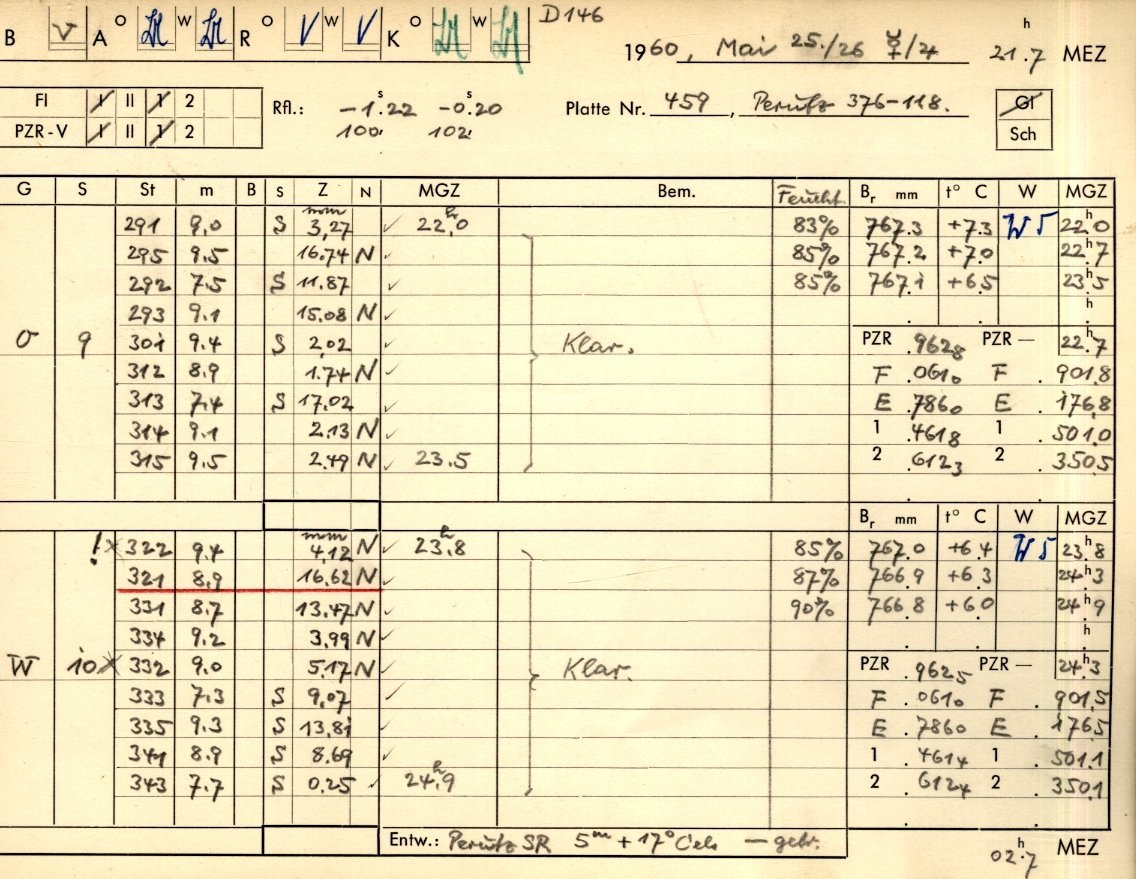 D 146
B V A O W R O V W V K O W
1960, Mai 25./26 ☿/4 21.7 h MEZ
FI I II 1 2 Rfl.: −1.22 s −0.20 s Platte Nr. 459, Perutz 376-118. Gl
PZR-V I II 1 2 100 102 Sch
G S St m B S Z N MGZ Bem. Feucht. Br mm t° C W MGZ
291 9.0 S 3,27 mm ✓ 22.0 h 83% 767.3 +7.3 W 5 22.0 h
295 9.5 16.74 N ✓ 85% 767.2 +7.0 22.7 h
292 7.5 S 11.87 ✓ 85% 767.1 +6.5 23.5 h
293 9.1 15.08 N ✓ . . h
O 9 301 9.4 S 2,02 ✓ Klar. PZR .9628 PZR — 22.7 h
312 8.9 1.74 N ✓ F .0610 F .901,8
313 7.4 S 17.02 ✓ E .7860 E .176,8
314 9.1 2.13 N ✓ 1 .4618 1 .501.0
315 9.5 2.49 N ✓ 23.5 2 .6123 2 .350,5
Br mm t° C W MGZ
! × 322 9.4 4.12 mm N ✓ 23.8 h 85% 767.0 +6.4 W 5 23.8 h
321 8.9 16.62 N ✓ 87% 766.9 +6.3 24.3 h
331 8.7 13.47 N ✓ 90% 766.8 +6.0 24.9 h
334 9.2 3.99 N ✓ . . h
W 10 × 332 9.0 5.17 N ✓ Klar. PZR .9625 PZR — 24.3 h
333 7.3 S 9,07 ✓ F .0610 F .901,5
335 9.3 S 13,81 ✓ E .7860 E .176,5
341 8.9 S 8.69 ✓ 1 .4614 1 .501.1
343 7.7 S 0,25 ✓ 24.9 h 2 .6124 2 .350,1
Entw.: Perutz SR 5 m + 17° Cels — gebr.
02.7 h MEZ